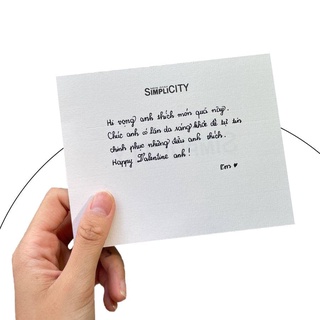 SIMPLICITY
Hi vọng anh thích món quà này.
Chúc anh có làn da sáng khỏe để tự tin
chinh phục những điều anh thích.
Happy Valentine anh!
Em ♥